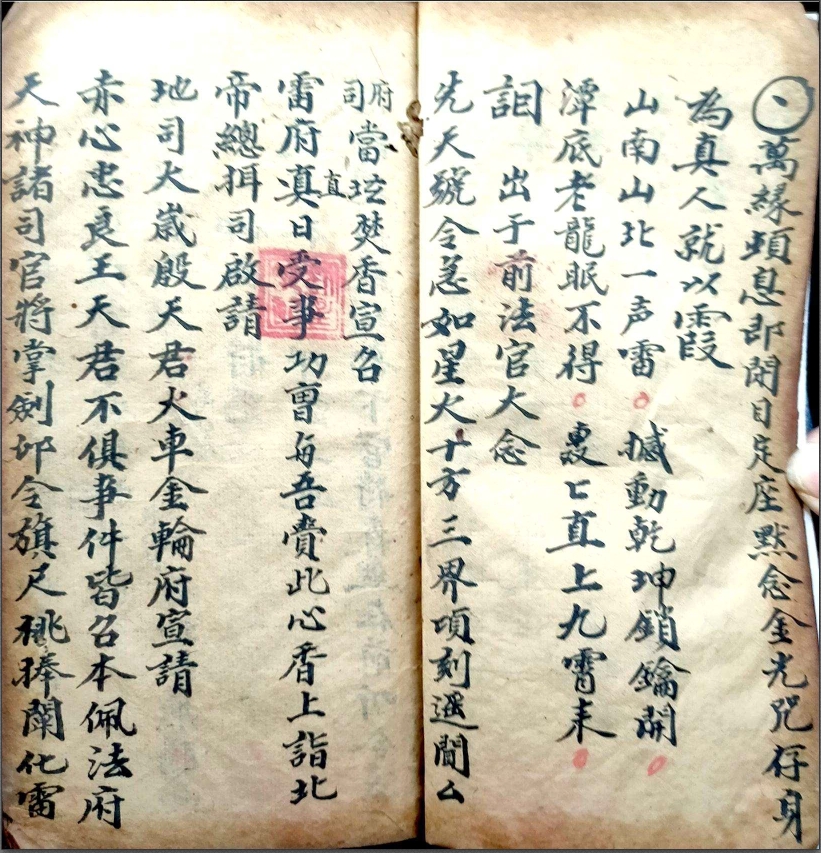 萬緣頓息即閉目定座默念金光咒存身
為真人就以霞
山南山北一声雷 撼動乾坤鎖鑰開
潭底老龍眠不得 裊匕直上九霄来
詯 出于前法官大念
先天號令急如星火十方三界頃刻遥聞厶
府司當垃焚香宣名
雷府真日直受事功曺每吾費此心香上詣北
帝總捐司啟請
地司大歲殷天君火車金輪府宣請
赤心忠良王天君不俱事件皆名本佩法府
天神諸司官將掌劍印令旗尺桃捧闌化雷